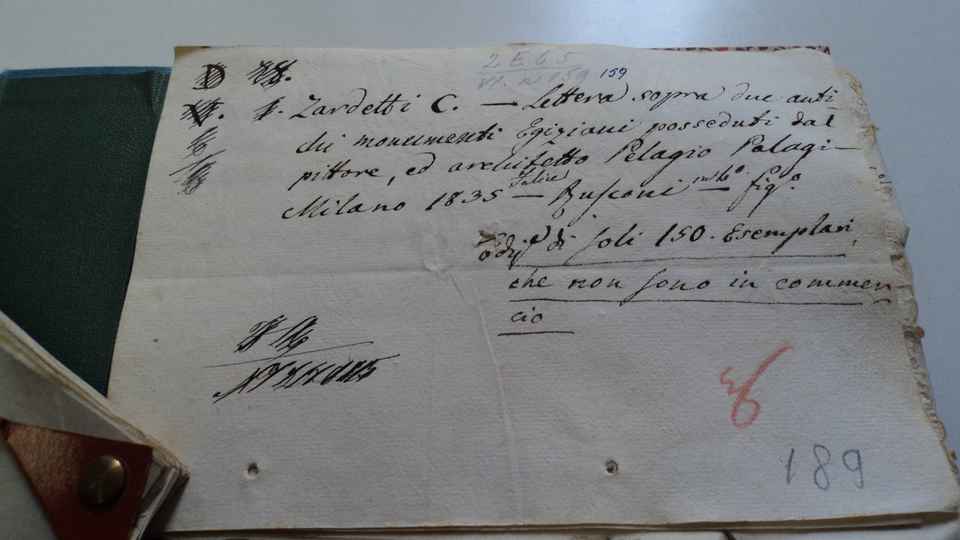 2 E 65
VI. n 159 159
D
1. Zardetti C. — Lettera sopra due anti
chi monumenti Egiziani posseduti dal
pittore, ed architetto Pelagio Palagi —
Milano 1835 — Rusconi — fig.º
Ediz di soli 150. Esemplari,
che non sono in commer
cio
189